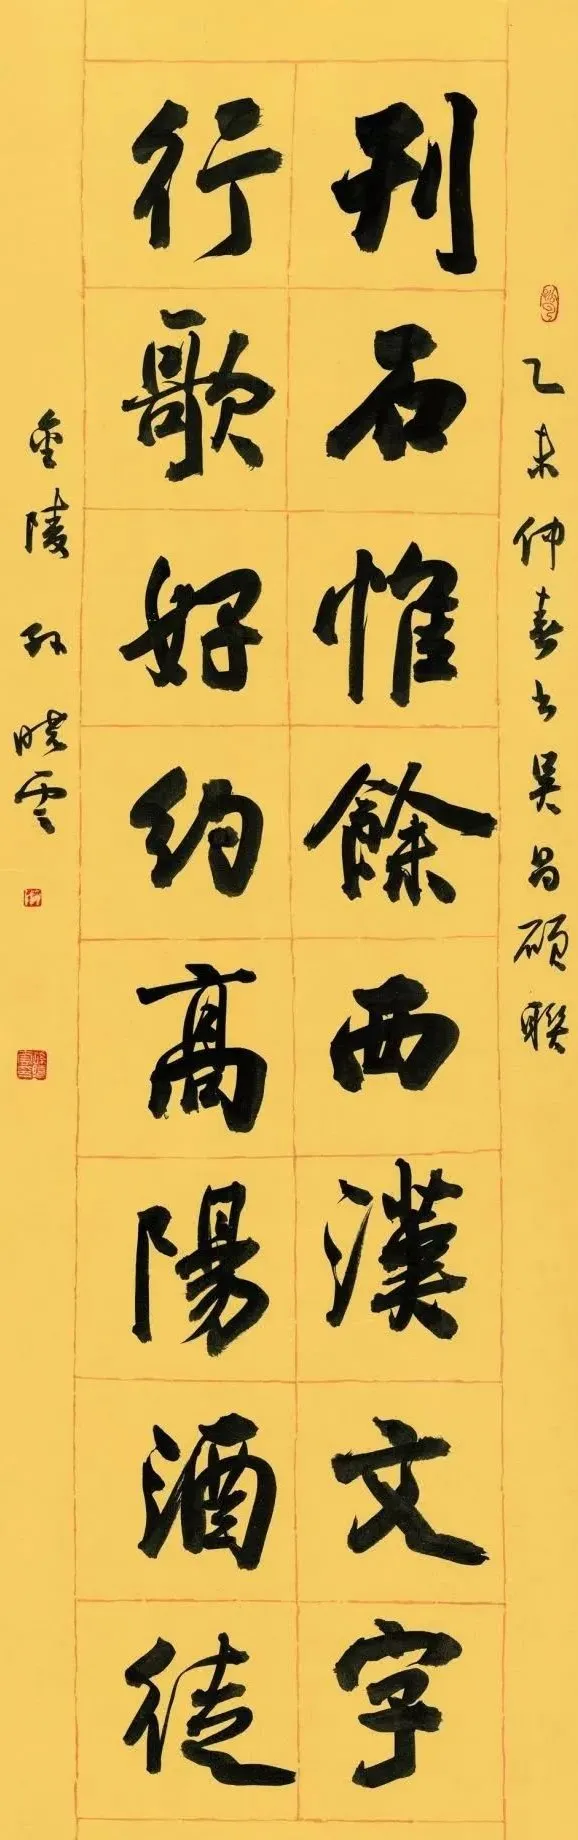 乙未仲春书吴昌硕联
刊石惟餘西漢文字
行歌好約高陽酒徒
金陵孙晓雲